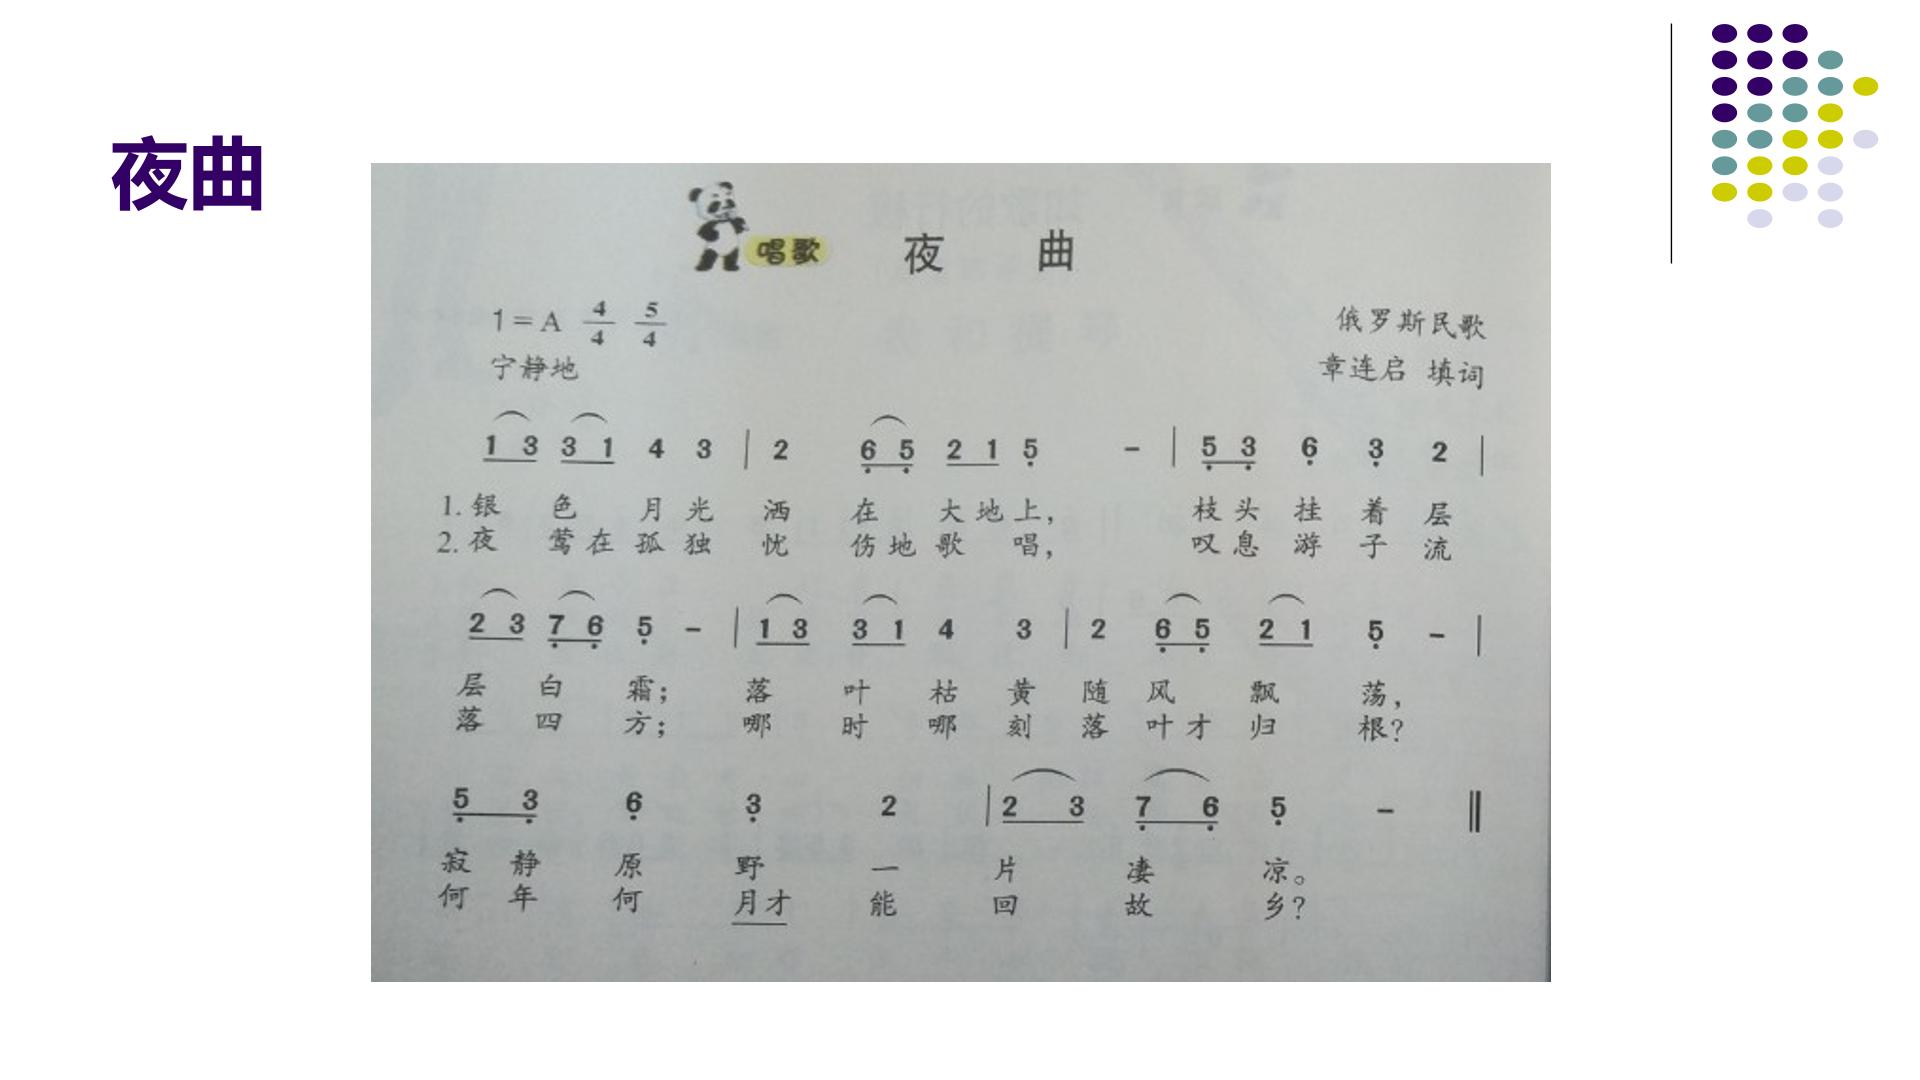 夜曲
唱歌 夜 曲
1=A 4/4 5/4 俄罗斯民歌
宁静地 章连启 填词
1 3 3 1 4 3 | 2 6̣ 5̣ 2 1 5̣ - | 5̣ 3̣ 6̣ 3̣ 2 |
1. 银 色 月 光 洒 在 大 地 上, 枝 头 挂 着 层
2. 夜 莺 在 孤 独 忧 伤 地 歌 唱, 叹 息 游 子 流
2 3 7̣ 6̣ 5̣ - | 1 3 3 1 4 3 | 2 6̣ 5̣ 2 1 5̣ - |
层 白 霜; 落 叶 枯 黄 随 风 飘 荡,
落 四 方; 哪 时 哪 刻 落 叶 才 归 根?
5̣ 3̣ 6̣ 3̣ 2 | 2 3 7̣ 6̣ 5̣ - ‖
寂 静 原 野 一 片 凄 凉。
何 年 何 月 才 能 回 故 乡?